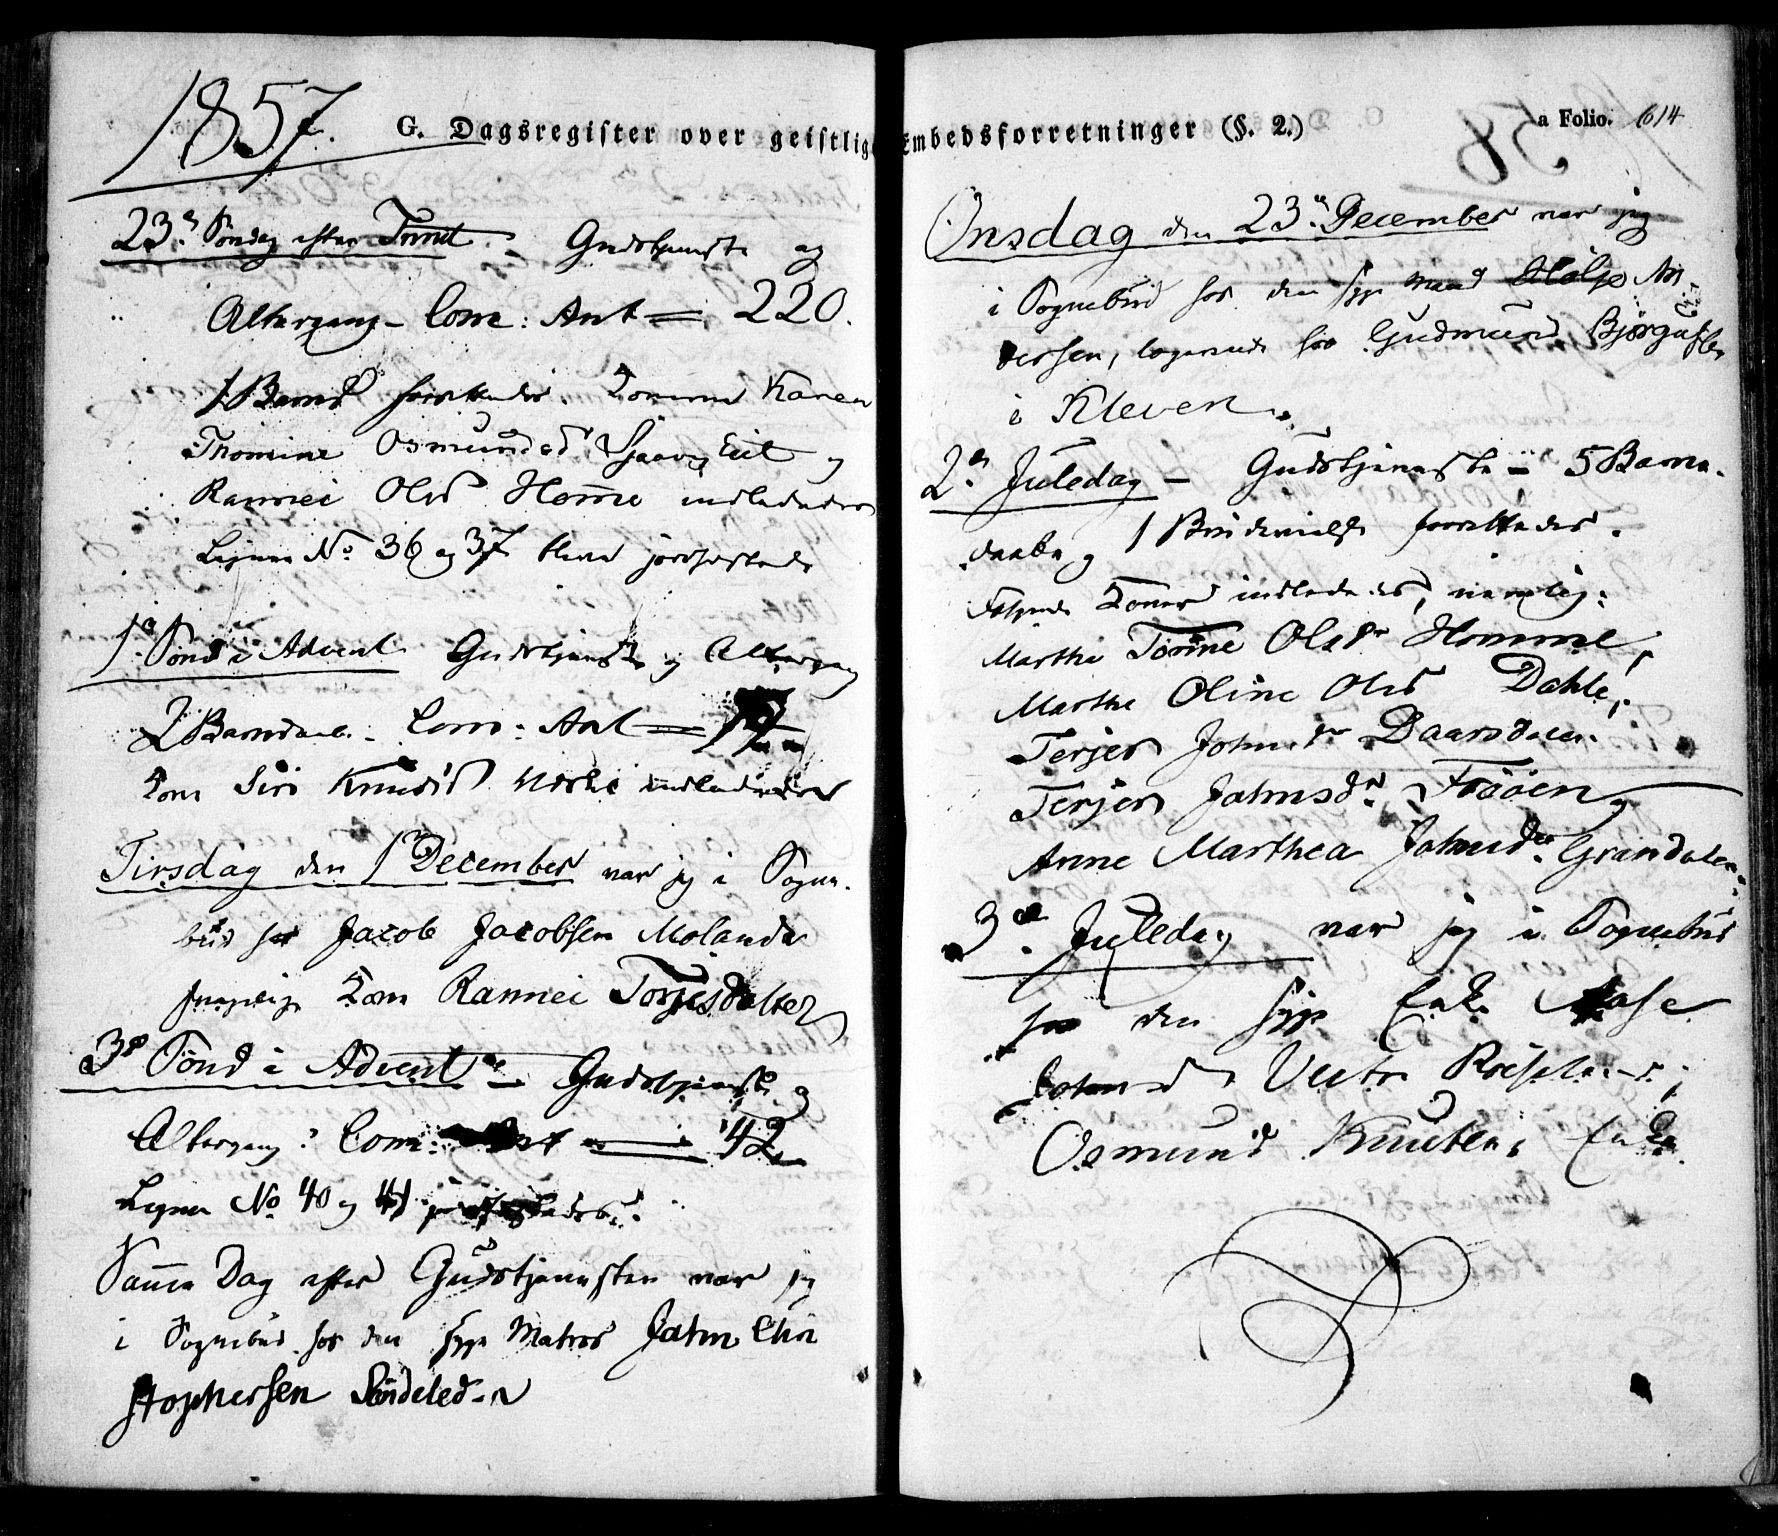 1857.
G. Dagsregister over geistlig
23de Søndag efter Trinit. - Gudstjeneste og
Altergang - Com: Ant = 220.
1 Barned forrettedes. Konerne Karen
Thomine Osmundsd Sjaavaag Eiet og
Rannei Olsd Homme indlededes
Ligene No 36 og 37 bleve jordfæstede
1ste Sönd i Advent Gudstjeneste og Altergang
2 Barnedaab. - Com: Ant =
Kone Siri Knudsd indlededes
Tirsdag den 1 December var jeg i Sogne-
bud hos Jacob Jacobsen Molands
Kone Rannei Torjesdatter
3die Sönd i Advent - Gudstjeneste og
Altergang: Com: Ant = 42
Ligene No 40 og 41
Samme Dag efter Gudstjenesten var jeg
i Sognebud hos den syge Matros Jahn Chri
stophersen Söndeled
Embedsforretninger (§. 2.)
a Folio. 614
58
Onsdag den 23de December var jeg
i Sognebud hos den syge Mand An
dersen, logerende hos Gudmund Bjørgulfsen
i Kleven.
2den Juledag - Gudstjeneste - 5 Barne-
daabe og 1 Brudevielse forrettedes.
Følgende Koner indlededes, nemlig:
Marthe Tomine Olsdr Homme,
Marthe Oline Olsd Dahle,
Terjer Johnsdr Daarsdalen
Terjer Jahnsdr Frööen og
Anne Marthea Jahnsdr Grindalen.
3die Juledag var jeg i Sognebud
hos den syge Enke Aase
Johnsd Vestre Röiseland,
Osmund Knutsens Enke.